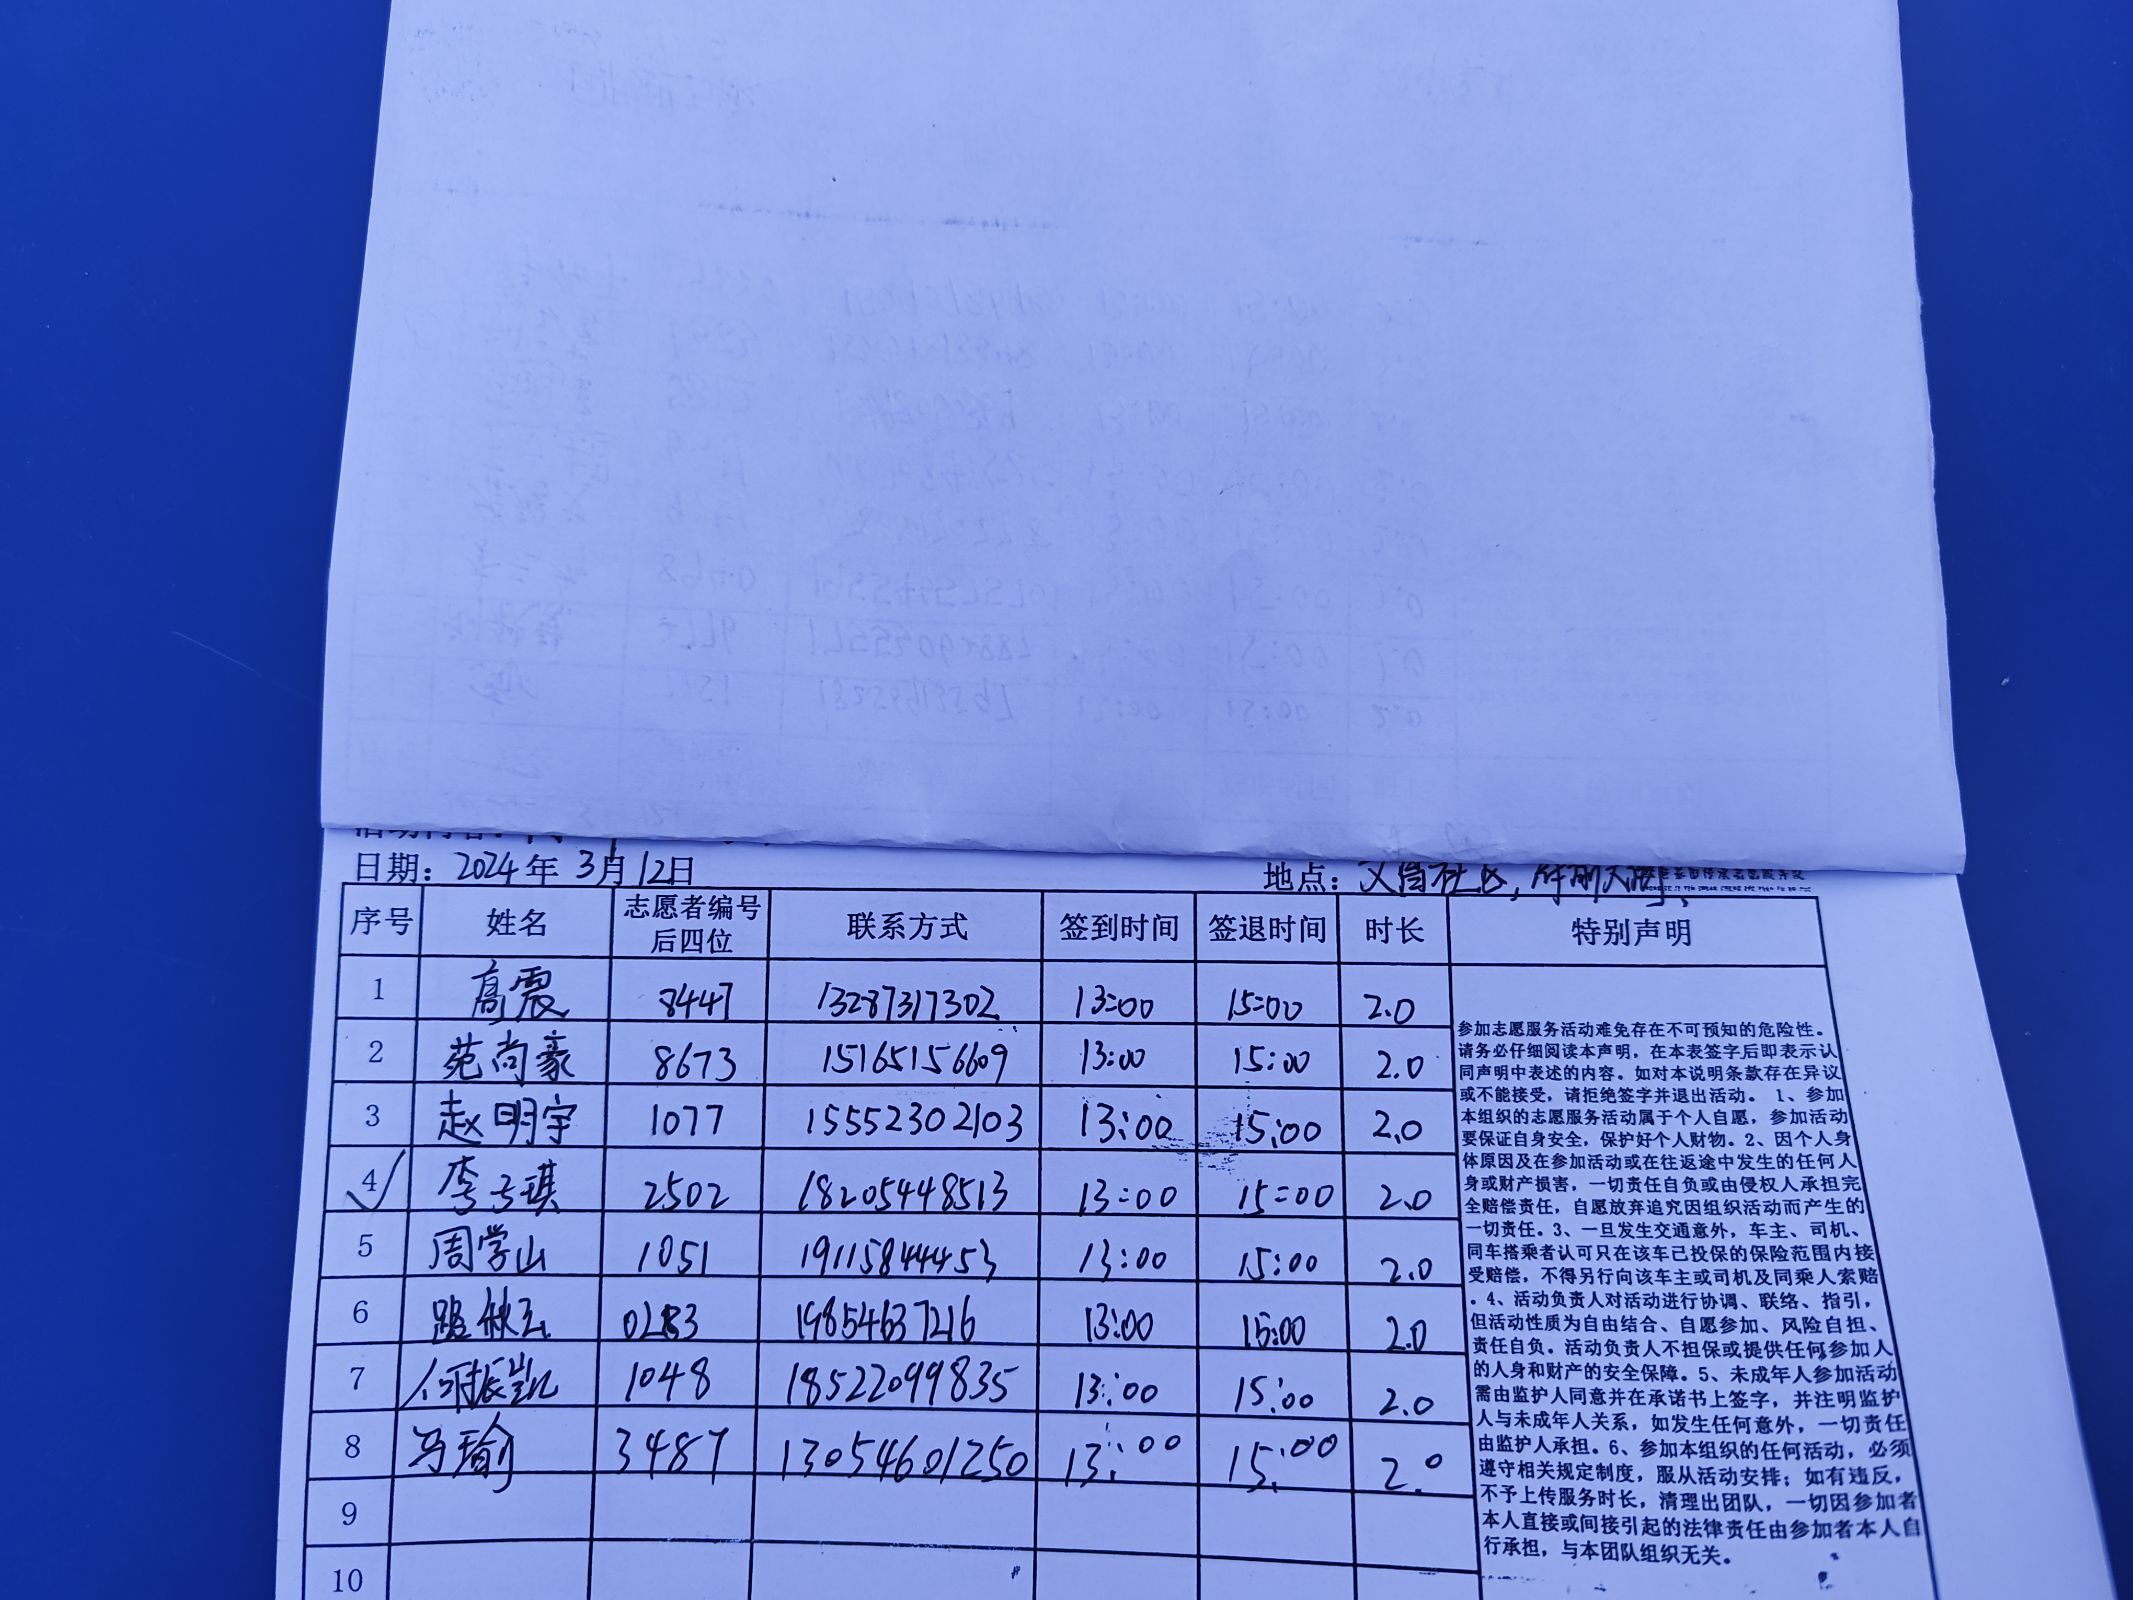 日期：2024年 3月12日
地点：文信社区，
序号 姓名 志愿者编号后四位 联系方式 签到时间 签退时间 时长 特别声明
1 高震 8447 13287317302 13:00 15:00 2.0
2 苑尚豪 8673 15165156609 13:00 15:00 2.0
3 赵明宇 1077 15552302103 13:00 15:00 2.0
4 李子琪 2502 18205448513 13:00 15:00 2.0
5 周学山 1051 19115844453 13:00 15:00 2.0
6 路秋玉 0283 19854637216 13:00 15:00 2.0
7 何振凯 1048 18522099835 13:00 15:00 2.0
8 马瑜 3487 13054601250 13:00 15:00 2.0
9
10
参加志愿服务活动难免存在不可预知的危险性。
请务必仔细阅读本声明，在本表签字后即表示认
同声明中表述的内容。如对本说明条款存在异议
或不能接受，请拒绝签字并退出活动。 1、参加
本组织的志愿服务活动属于个人自愿，参加活动
要保证自身安全，保护好个人财物。2、因个人身
体原因及在参加活动或在往返途中发生的任何人
身或财产损害，一切责任自负或由侵权人承担完
全赔偿责任，自愿放弃追究因组织活动而产生的
一切责任。3、一旦发生交通意外，车主、司机、
同车搭乘者认可只在该车已投保的保险范围内接
受赔偿，不得另行向该车主或司机及同乘人索赔
。4、活动负责人对活动进行协调、联络、指引，
但活动性质为自由结合、自愿参加、风险自担、
责任自负。活动负责人不担保或提供任何参加人
的人身和财产的安全保障。5、未成年人参加活动
需由监护人同意并在承诺书上签字，并注明监护
人与未成年人关系，如发生任何意外，一切责任
由监护人承担。6、参加本组织的任何活动，必须
遵守相关规定制度，服从活动安排；如有违反，
不予上传服务时长，清理出团队，一切因参加者
本人直接或间接引起的法律责任由参加者本人自
行承担，与本团队组织无关。